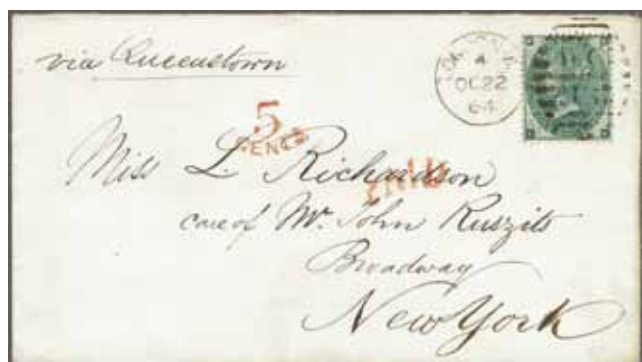 via Queenstown
LONDON
4
OC 22
64
5
CENTS
PAID
Miss L. Richardson
care of Mr. John Ruszits
Broadway
New York